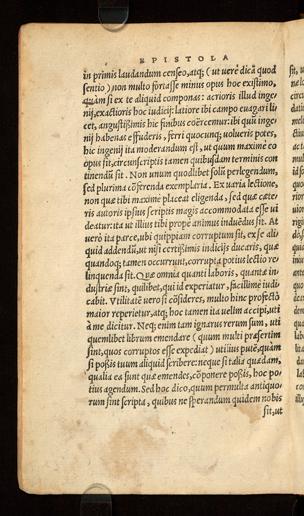 EPISTOLA
in primis laudandum censeo, atq; (ut uere dicā quod
sentio) non multo fortasse minus opus hoc existimo,
quàm si ex te aliquid componas: acrioris illud inge,
nij, exactioris hoc iudicij: latiore ibi campo euagari li,
cet, angustissimis hic finibus coërcemur: ibi quò inge,
nij habenas effuderis, ferri quocunq; uolueris potes,
hic ingenij ita moderandum est, ut quum maxime co
opus sit, circunscriptis tamen quibusdam terminis con
tinendū sit. Non unum quodlibet solū perlegendum,
sed plurima cōferenda exemplaria. Ex uaria lectione,
non quæ tibi maxime placeat eligenda, sed quæ cæte,
ris autoris ipsius scriptis magis accommodata esse ui
deatur: ita ut illius tibi propè animus induēdus sit. At
uerò ita parce, ubi quippiam corruptum sit, ex se ali,
quid addendū, ut nisi certissimis indicijs ducaris, quæ
quandoq; tamen occurrunt, corrupta potius lectio re,
linquenda sit. Quæ omnia quanti laboris, quanta in,
dustriæ sint, quilibet, qui id experiatur, facillime iudi,
cabit. Vtilitatē uero si cōsideres, multo hinc profectò
maior reperietur, atq; hoc tamen ita uelim accipi, uti
à me dicitur. Neq; enim tam ignarus rerum sum, uti
quemlibet librum emendare (quum multi præsertim
sint, quos corruptos esse expediat) utilius putē, quàm
si possis tuum aliquid scribere: neque si talia quædam,
qualia ea sunt quæ emendes, cōponere possis, hoc po,
tius agendum. Sed hoc dico, quum permulta antiquo,
rum sint scripta, quibus ne sperandum quidem nobis
sit, ut